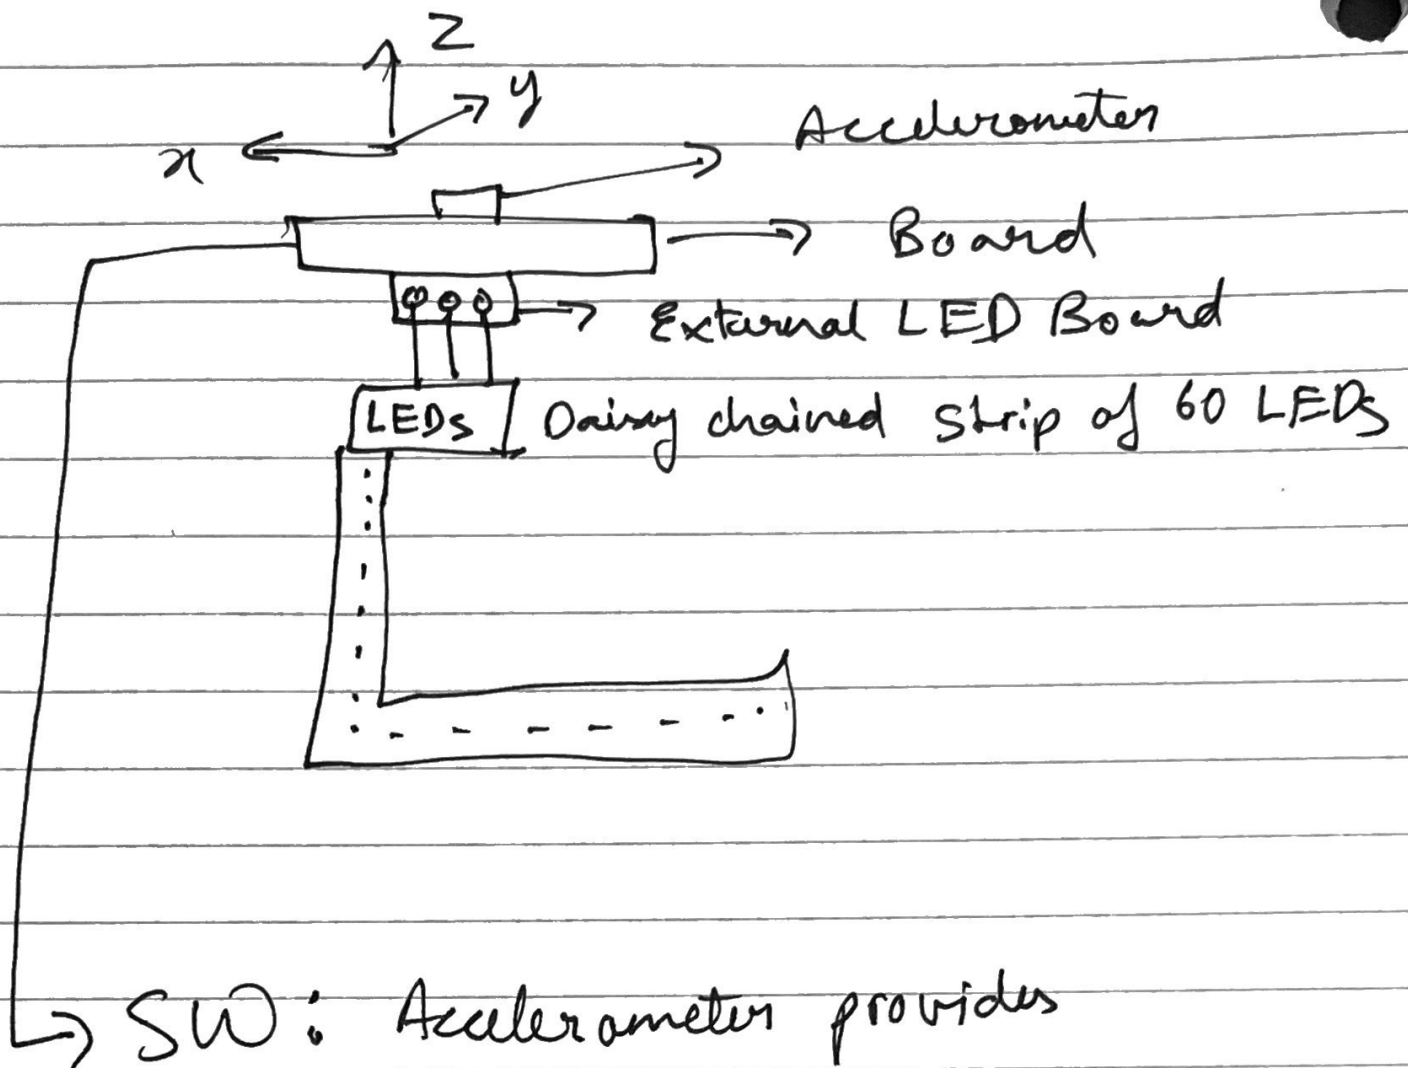 z
y
x
Accelerometer
Board
External LED Board
LEDs Daisy chained strip of 60 LEDs
SW: Accelerometer provides